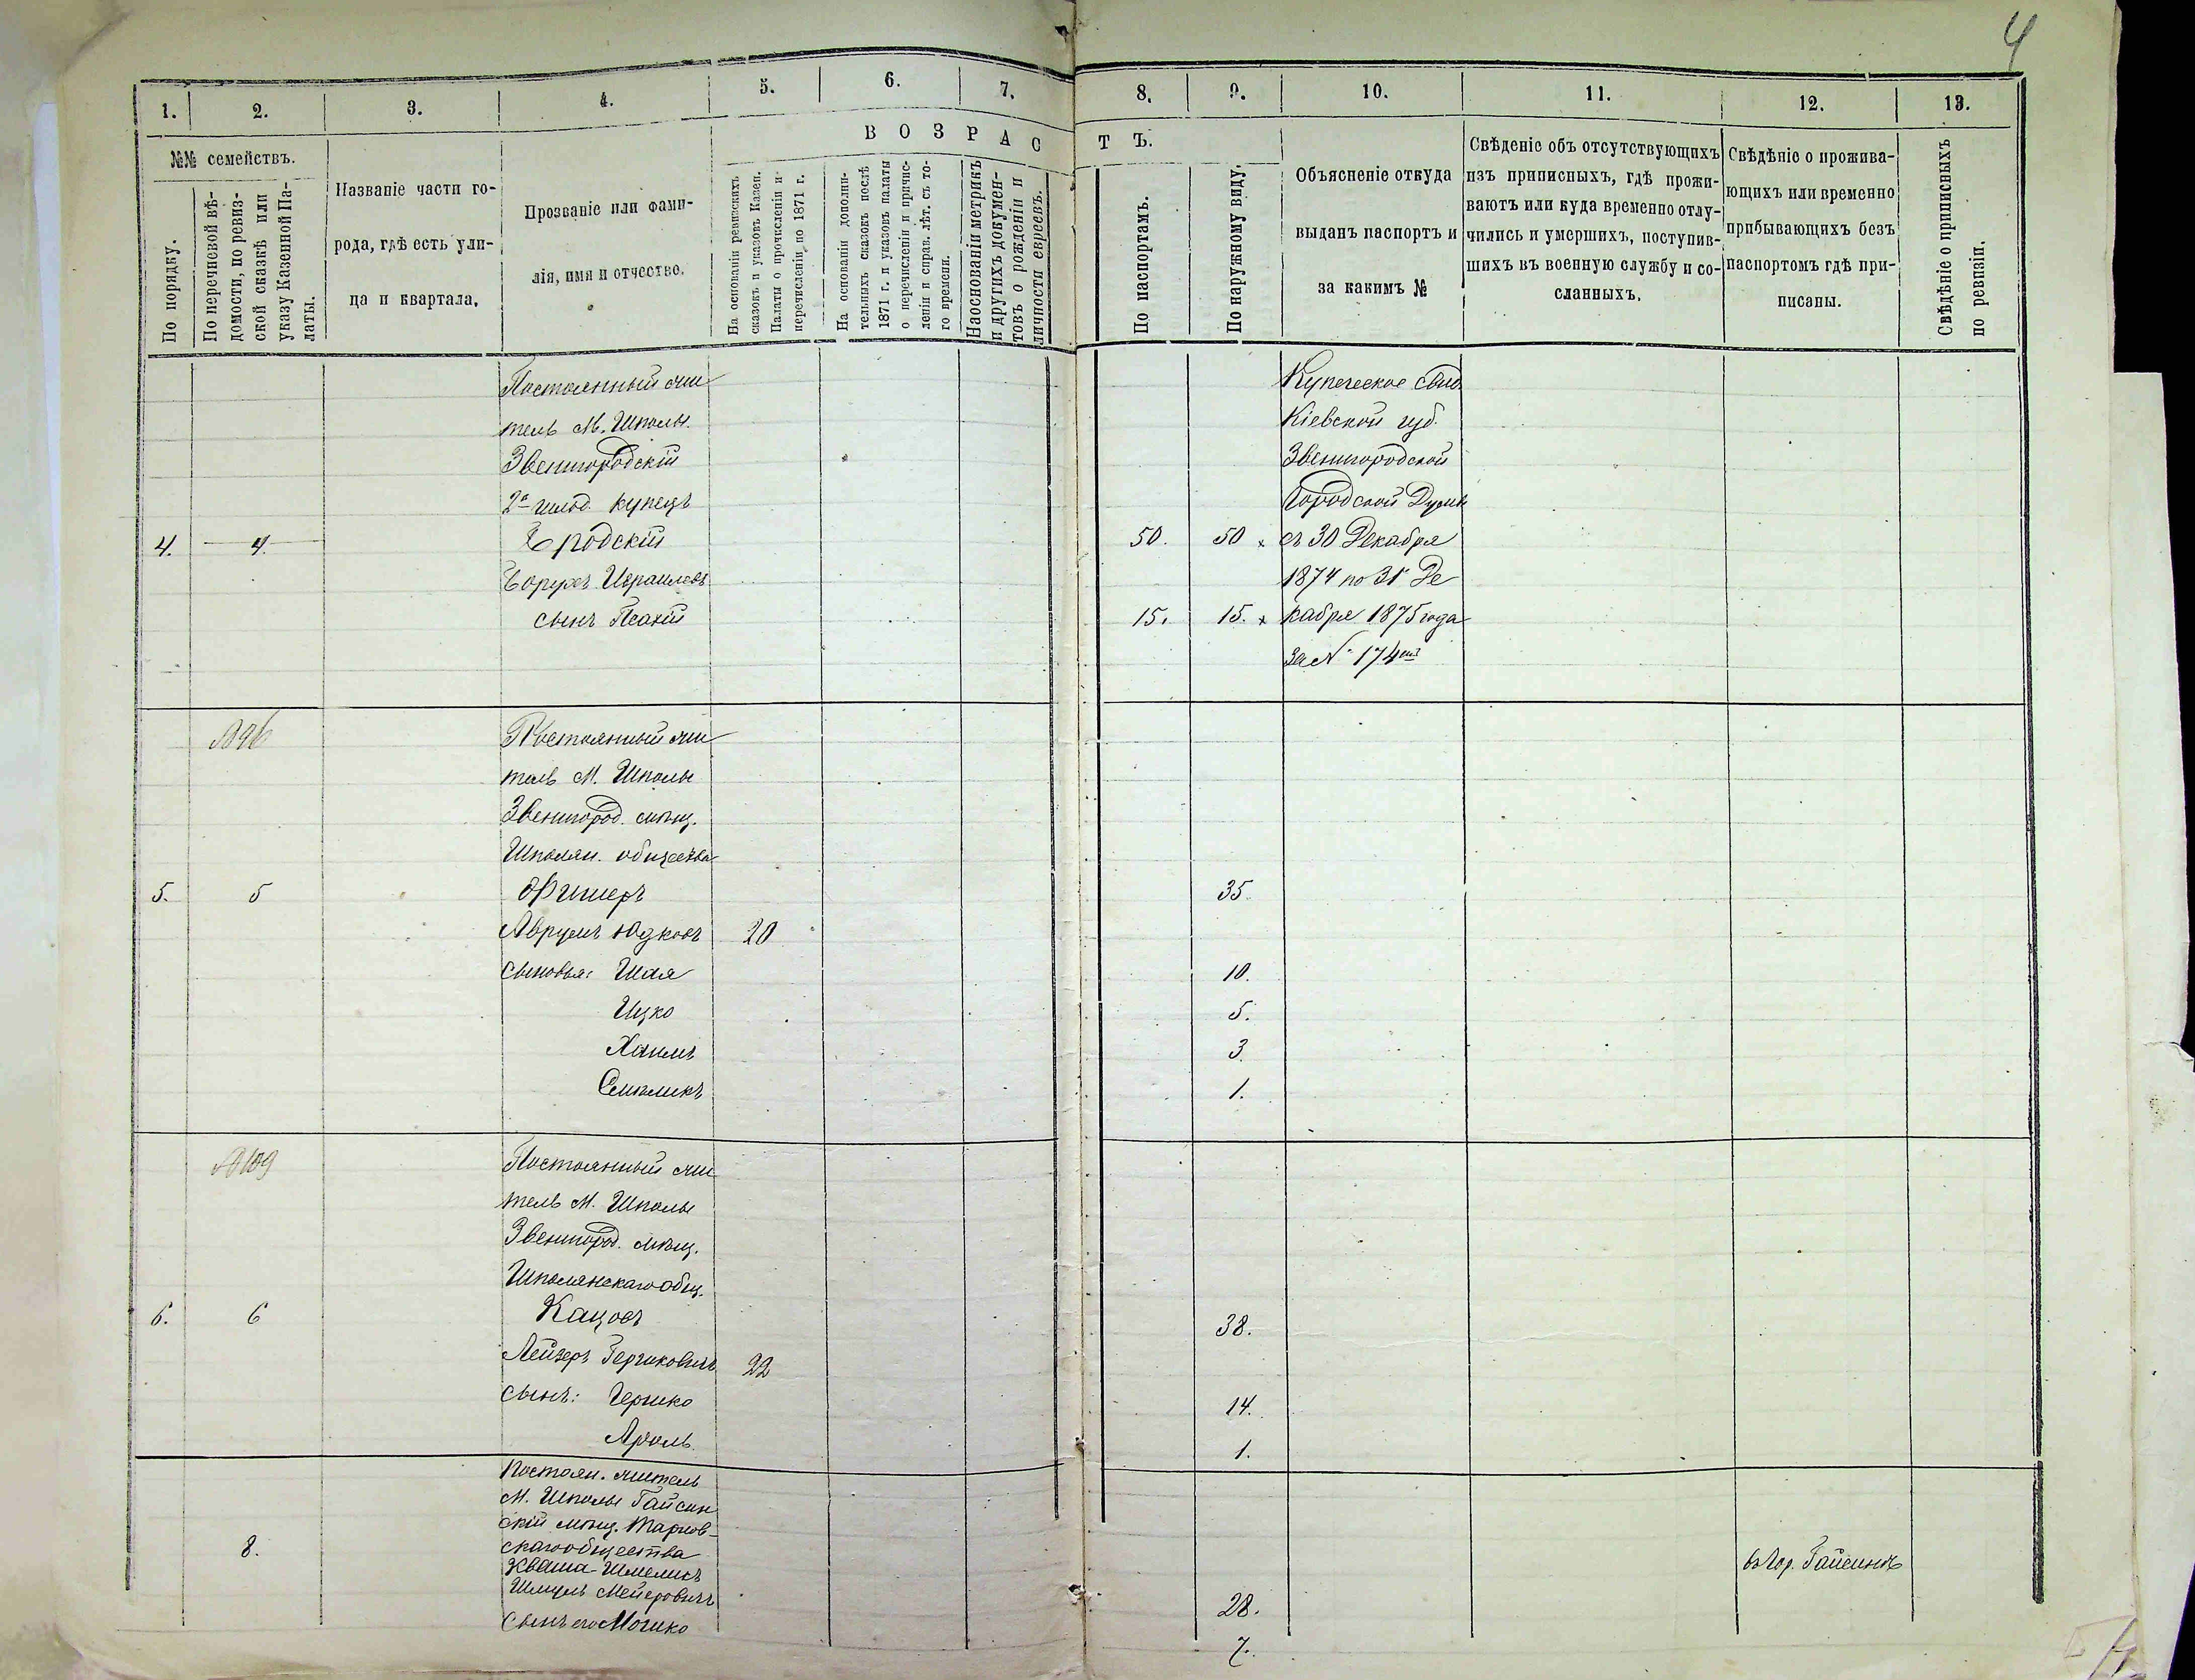 4
1. 2. 3. 4. 5. 6. 7. 8. 9. 10. 11. 12. 13.
№№ семействъ.
По порядку.
По перечневой вѣ-
домости, по ревиз-
ской сказкѣ или
указу Казенной Па-
латы.
Названіе части го-
рода, гдѣ есть ули-
ца и квартала.
Прозваніе или фами-
лія, имя и отчество.
ВОЗРАСТЪ.
На основаніи ревизскихъ
сказокъ и указовъ Казен.
Палаты о прочисленіи и
перечисленіи по 1871 г.
На основаніи дополни-
тельныхъ сказокъ послѣ
1871 г. и указовъ палаты
о перечисленіи и причис-
леніи и справ. лѣт. съ то-
го времени.
На основаніи метрикъ
и другихъ докумен-
товъ о рожденіи и
личности евреевъ.
По паспортамъ.
По наружному виду.
Объясненіе откуда
выданъ паспортъ и
за какимъ №
Свѣденіе объ отсутствующихъ
изъ приписныхъ, гдѣ прожи-
ваютъ или куда временно отлу-
чились и умершихъ, поступив-
шихъ въ военную службу и со-
сланныхъ.
Свѣдѣніе о прожива-
ющихъ или временно
прибывающихъ безъ
паспортомъ гдѣ при-
писаны.
Свѣдѣніе о приписныхъ
по ревизіи.
Постоянный жи
тель М. Шполы
Звенигородскій
2й гильд. купецъ
4. 4. Бродскій 50. 50 х
Борухъ Израилевъ
сынъ Псахій 15. 15. х
Купеческое
Кіевской губ.
Звенигородской
Городской Думы
съ 30 Декабря
1874 по 31 Де
кабря 1875 года
за № 174
№96
Постоянный жи
тель М. Шполы
Звенигород. мѣщ.
Шполян. общества
5. 5 Фишеръ 35.
Аврумъ Юдковъ 20
Сыновья: Шая 10.
Ицко 5.
Хаимъ 3.
1.
№109
Постоянный жи
тель М. Шполы
Звенигород. мѣщ.
Шполянскаго общ.
6. 6 Кацовъ 38.
Лейзеръ Гершковичъ 22
Сынъ: Гершко 14.
1.
Постоян. житель
М. Шполы Гайсин
скій мѣщ.
скаго общества
8. Кваша-Шмелисъ въ гор. Гайсинѣ
Шмуль Мейеровичъ 28.
Сынъ его Мошко 7.